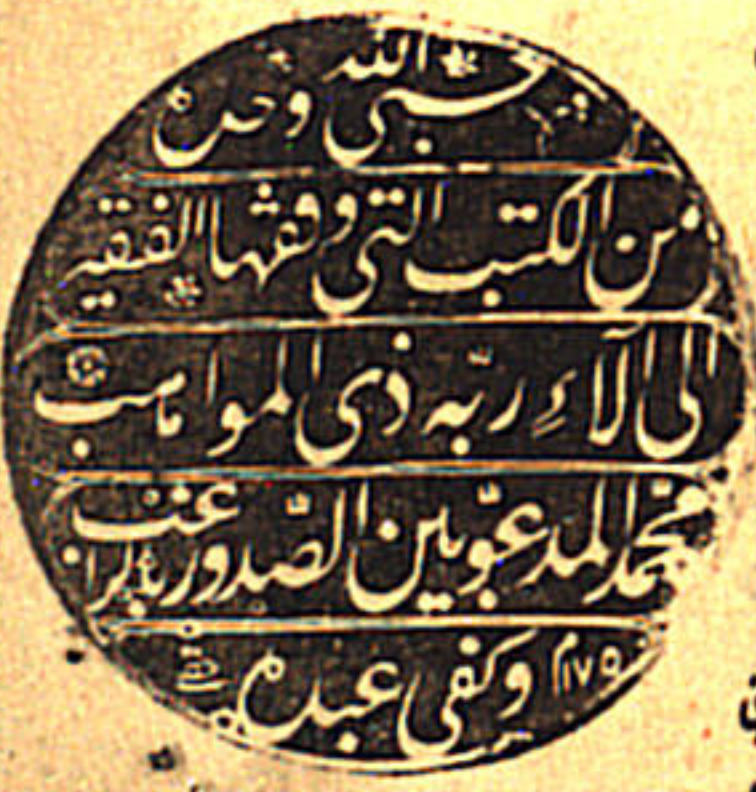 حسبي الله وحده
من الكتب التي وقفها الفقير
الى آلاءِ ربّه ذي المواهب
محمد المدعوّ بين الصّدور بالراغب
وكفى عبده